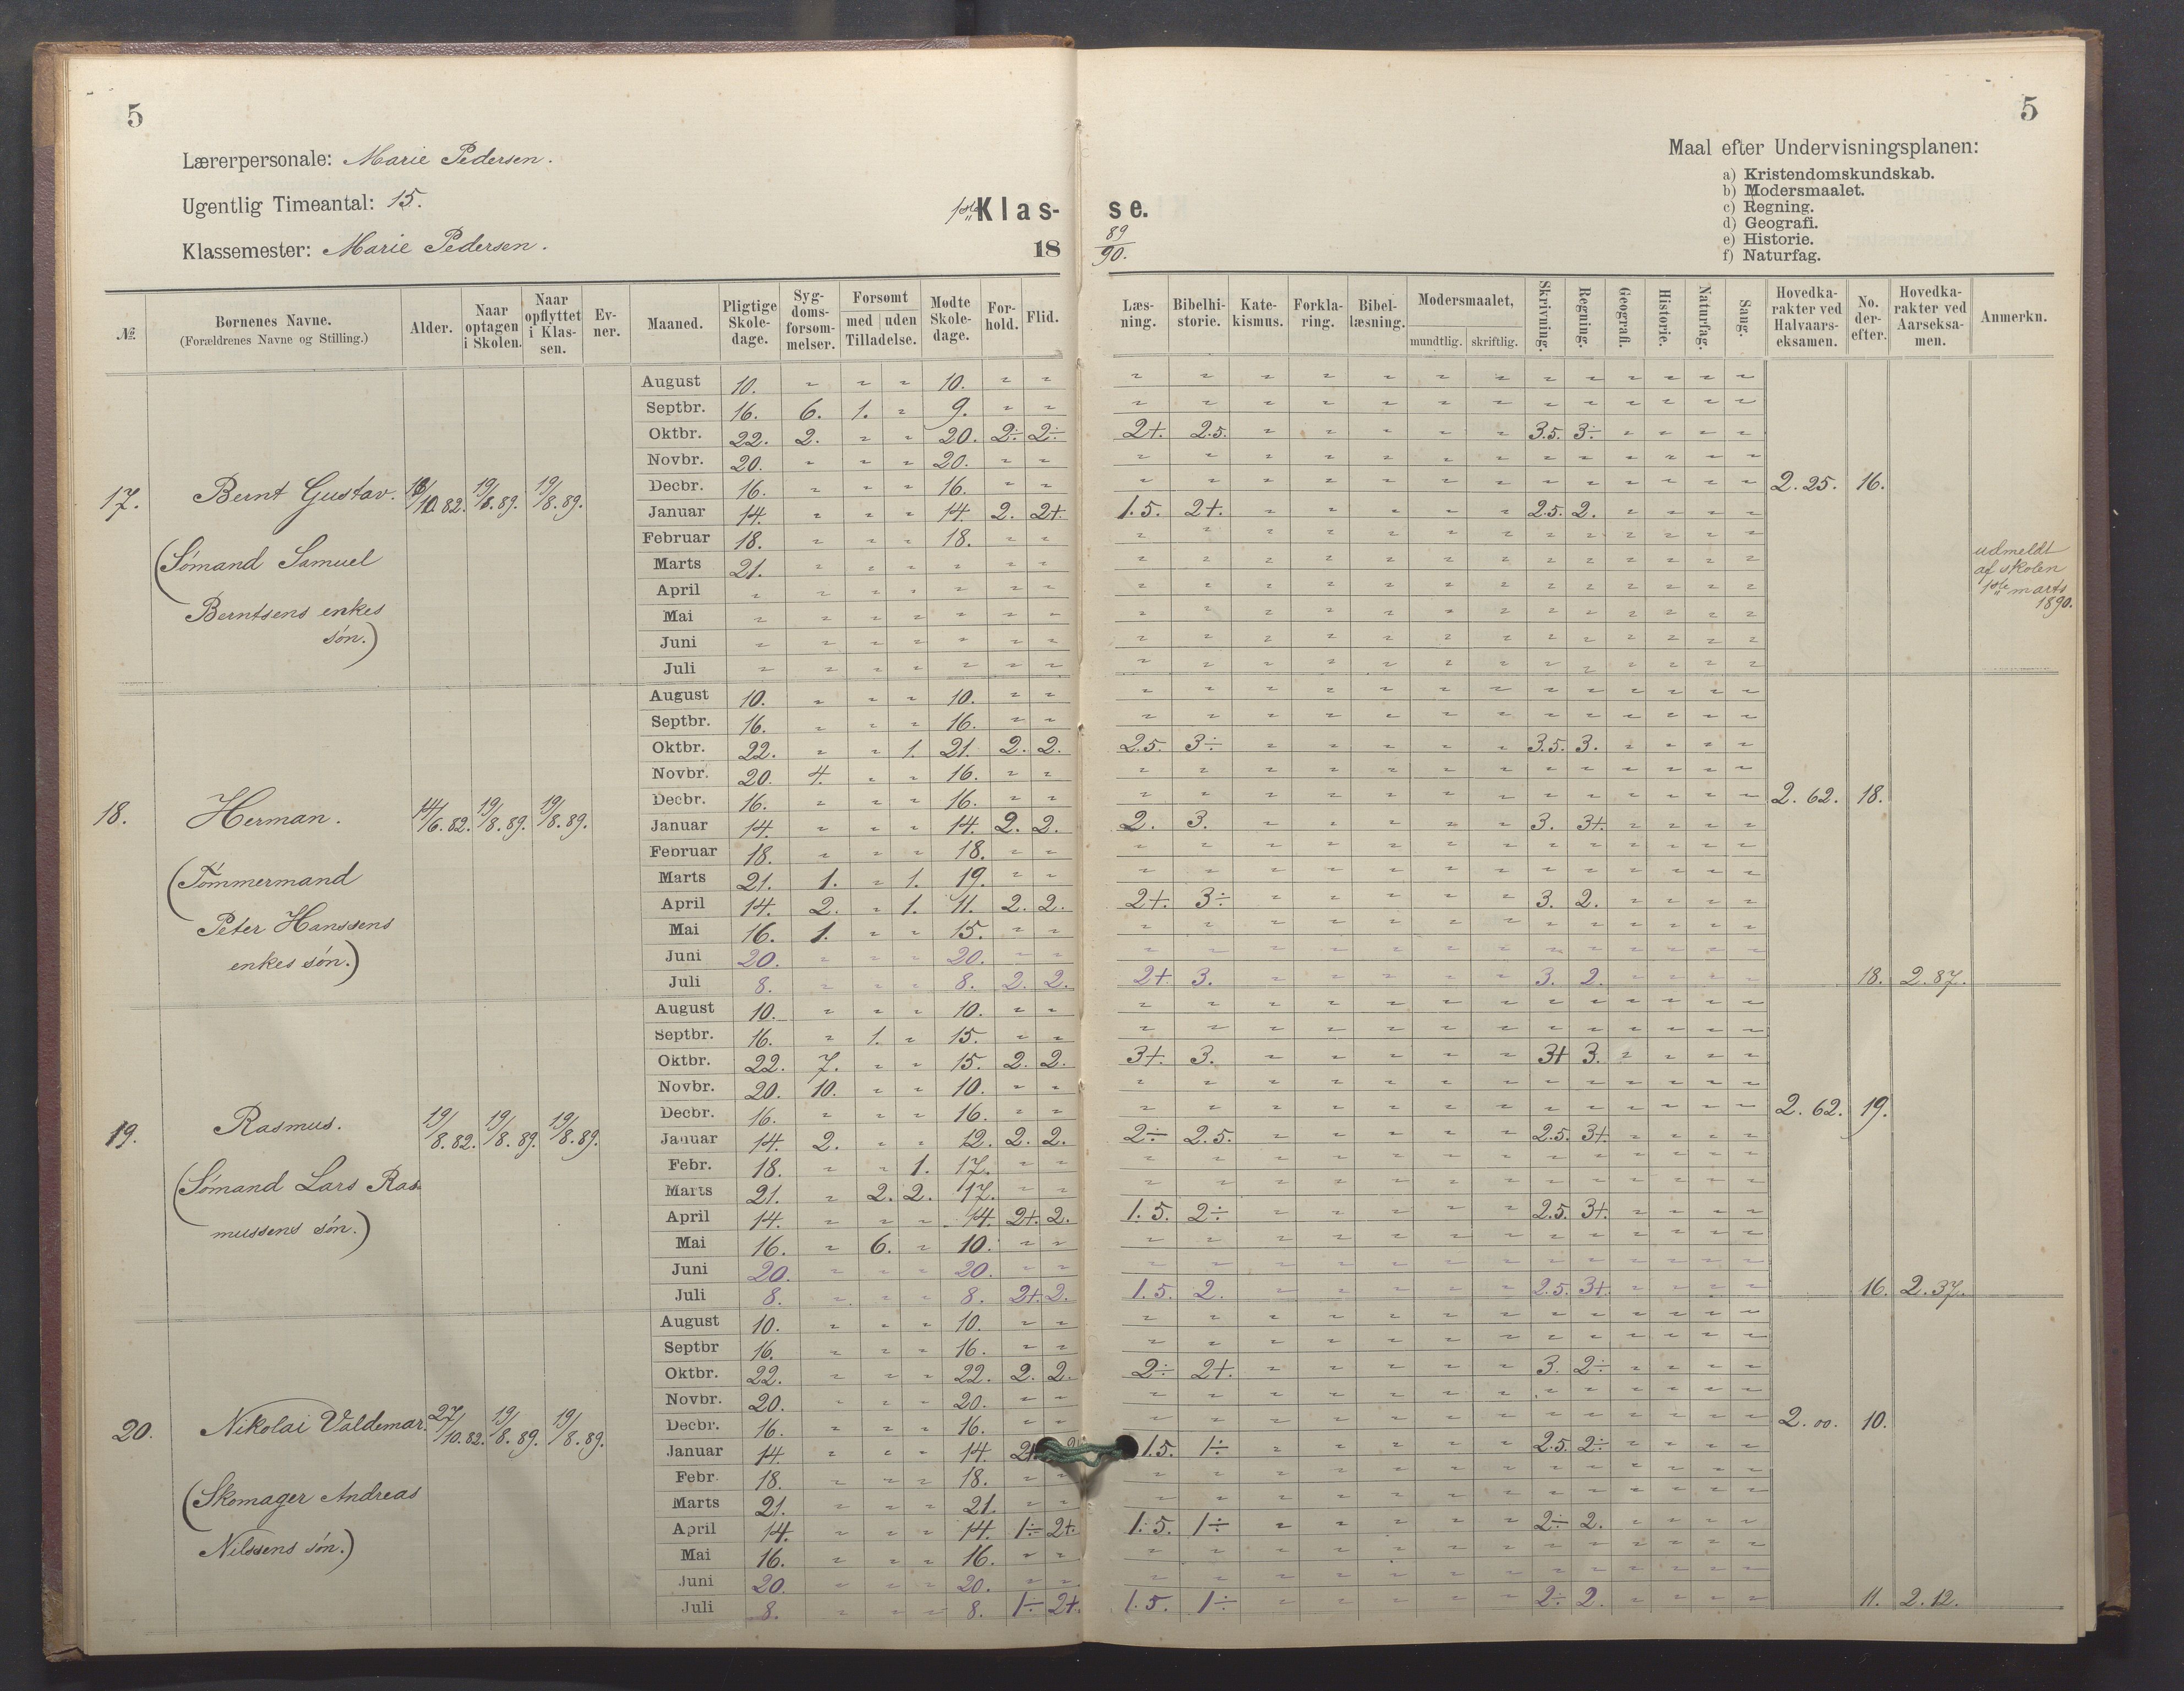 5
5
Lærerpersonale: Marie Pedersen.
Ugentlig Timeantal: 15.
Klassemester: Marie Pedersen.
1ste Klas-
se.
18
89/90.
Maal efter Undervisningsplanen:
a) Kristendomskundskab.
b) Modersmaalet.
c) Regning.
d) Geografi.
e) Historie.
f) Naturfag.
№ Børnenes Navne. (Forældrenes Navne og Stilling.) Alder. Naar optagen i Skolen. Naar opflyttet i Klassen. Evner. Maaned. Pligtige Skoledage. Sygdomsforsømmelser. Forsømt med uden Tilladelse. Mødte Skoledage. Forhold. Flid. Læsning. Bibelhistorie. Katekismus. Forklaring. Bibellæsning. Modersmaalet, mundtlig. skriftlig. Skrivning. Regning. Geografi. Historie. Naturfag. Sang. Hovedkarakter ved Halvaarseksamen. No. derefter. Hovedkarakter ved Aarseksamen. Anmerkn.
August 10. " " " 10. " " " " " " " " " " " " " " "
Septbr. 16. 6. 1. " 9. " " " " " " " " " " " " " " "
Oktbr. 22. 2. " " 20. 2÷ 2÷ 2+. 2.5. " " " " " 3.5. 3÷ " " " "
Novbr. 20. " " " 20. " " " " " " " " " " " " " " "
17. Bernt Gustav. 10.82. 19/8.89. 19/8.89. Decbr. 16. " " " 16. " " " " " " " " " " " " " " " 2.25. 16.
Januar 14. " " " 14. 2. 2+. 1.5. 2+. " " " " " 2.5. 2. " " " "
Februar 18. " " " 18. " " " " " " " " " " " " " " "
(Sømand Samuel Marts 21. " " " " " " " " " " " " " " " " " " " udmeldt af skolen 1ste marts 1890.
April " " " " " " " " " " " " " " " " " " " "
Berntsens enkes Mai " " " " " " " " " " " " " " " " " " " "
søn.) Juni " " " " " " " " " " " " " " " " " " " "
Juli " " " " " " " " " " " " " " " " " " " "
August 10. " " " 10. " " " " " " " " " " " " " " "
Septbr. 16. " " " 16. " " " " " " " " " " " " " " "
Oktbr. 22. " " 1. 21. 2. 2. 2.5. 3÷ " " " " " 3.5. 3. " " " "
Novbr. 20. 4. " " 16. " " " " " " " " " " " " " " "
18. Herman. 14/6.82. 19/8.89. 19/8.89. Decbr. 16. " " " 16. " " " " " " " " " " " " " " " 2.62. 18.
Januar 14. " " " 14. 2. 2. 2. 3. " " " " " 3. 3+. " " " "
Februar 18. " " " 18. " " " " " " " " " " " " " " "
(Tømmermand Marts 21. 1. " 1. 19. " " " " " " " " " " " " " " "
April 14. 2. " 1. 11. 2. 2. 2+. 3÷ " " " " " 3. 2. " " " "
Peter Hanssens Mai 16. 1. " " 15. " " " " " " " " " " " " " " "
enkes søn.) Juni 20. " " " 20. " " " " " " " " " " " " " " "
Juli 8. " " " 8. 2. 2. 2+. 3. " " " " " 3. 2. " " " " 18. 2.87.
August 10. " " " 10. " " " " " " " " " " " " " " "
Septbr. 16. " 1. " 15. " " " " " " " " " " " " " " "
Oktbr. 22. 7. " " 15. 2. 2. 3+. 3. " " " " " 3+ 3. " " " "
Novbr. 20. 10. " " 10. " " " " " " " " " " " " " " "
19. Rasmus. 19/8.82. 19/8.89. 19/8.89. Decbr. 16. " " " 16. " " " " " " " " " " " " " " " 2.62. 19.
Januar 14. 2. " " 12. 2. 2. 2÷ 2.5. " " " " " 2.5. 3+. " " " "
Febr. 18. " " 1. 17. " " " " " " " " " " " " " " "
(Sømand Lars Ras- Marts 21. " 2. 2. 17. " " " " " " " " " " " " " " "
April 14. " " " 14. 2+. 2. 1.5. 2÷ " " " " " 2.5. 3+. " " " "
mussens søn.) Mai 16. " 6. " 10. " " " " " " " " " " " " " " "
Juni 20. " " " 20. " " " " " " " " " " " " " " "
Juli 8. " " " 8. 2+. 2. 1.5. 2. " " " " " 2.5. 3+. " " " " 16. 2.37.
August 10. " " " 10. " " " " " " " " " " " " " " "
Septbr 16. " " " 16. " " " " " " " " " " " " " " "
Oktbr. 22. " " " 22. 2. 2. 2÷ 2+. " " " " " 3. 2÷ " " " "
Novbr. 20. " " " 20. " " " " " " " " " " " " " " "
20. Nikolai Valdemar. 27/10.82. 19/8.89. 19/8.89. Decbr. 16. " " " 16. " " " " " " " " " " " " " " " 2.00. 10.
Januar 14. " " " 14. 1.5. 1÷ " " " " " 2.5. 2÷ " " " "
Febr. 18. " " " 18. " " " " " " " " " " " " " " "
(Skomager Andreas Marts 21. " " " 21. " " " " " " " " " " " " " " "
April 14. " " " 14. 1÷ 2+. 1.5. 1÷ " " " " " 2÷ 2. " " " "
Nilssens søn.) Mai 16. " " " 16. " " " " " " " " " " " " " " "
Juni 20. " " " 20. " " " " " " " " " " " " " " "
Juli 8. " " " 8. 1÷ 2+. 1.5. 1÷ " " " " " 2÷ 2. " " " " 11. 2.12.